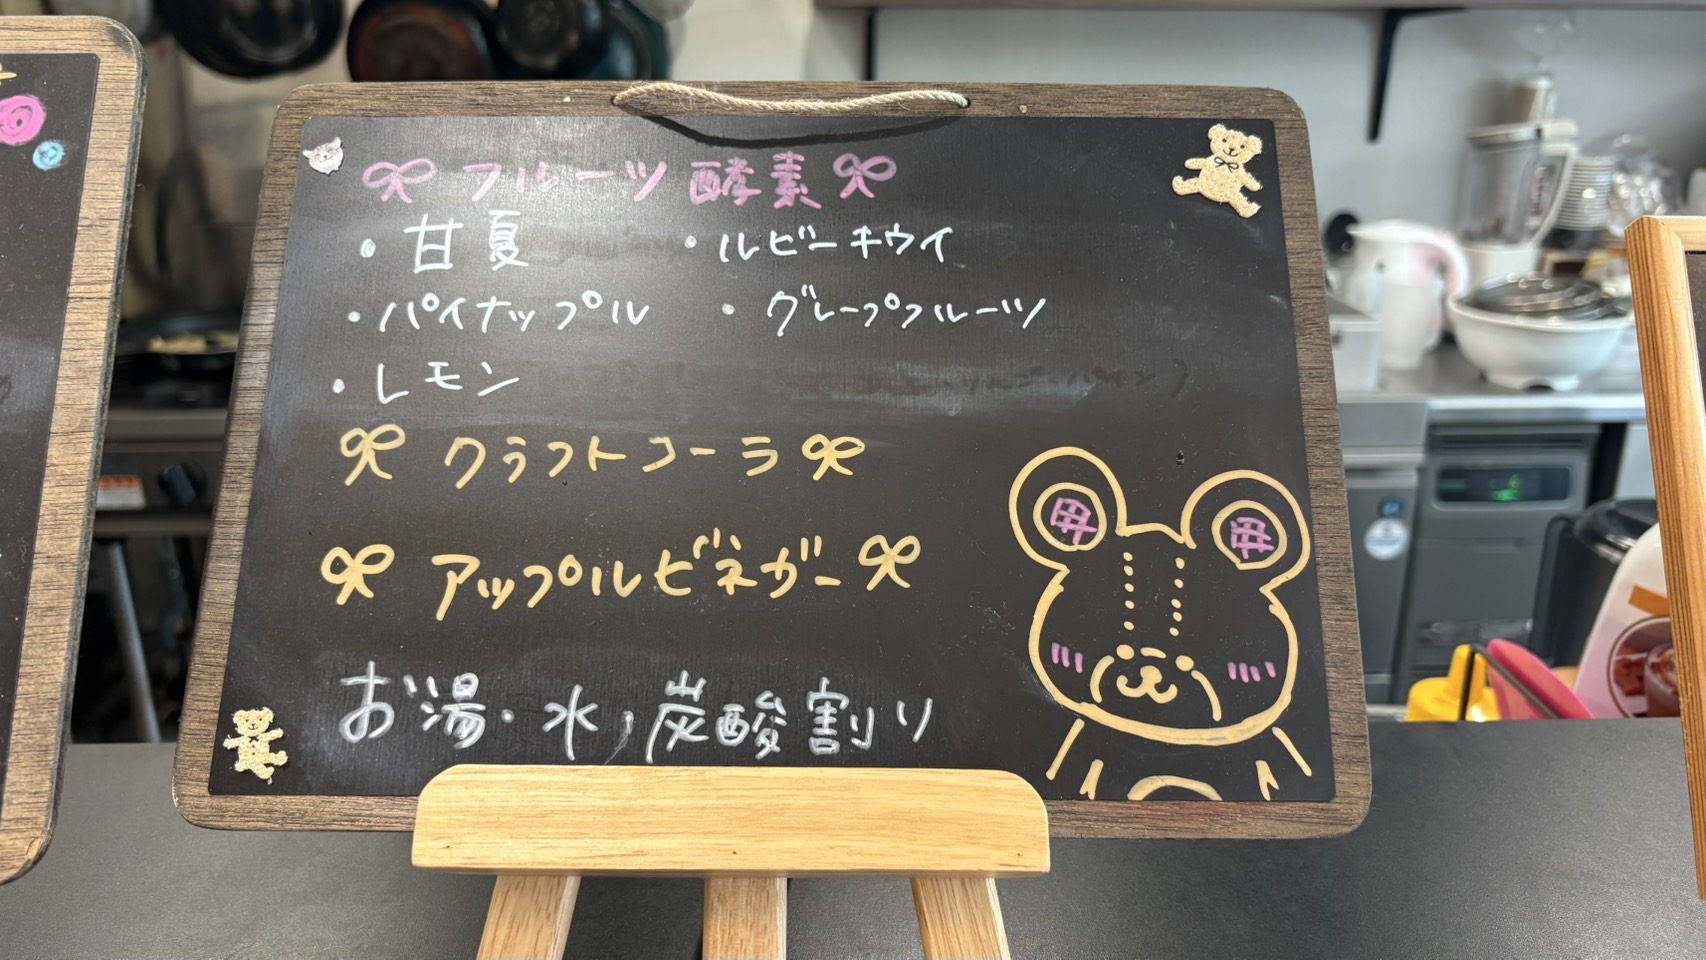 フルーツ酵素
・甘夏 ・ルビーキウイ
・パイナップル ・グレープフルーツ
・レモン
クラフトコーラ
アップルビネガー
お湯・水,炭酸割り